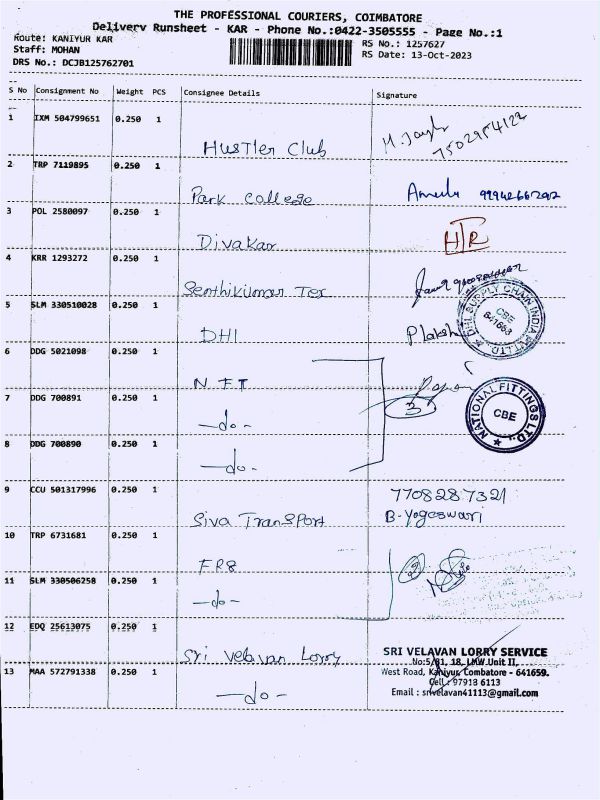 THE PROFESSIONAL COURIERS, COIMBATORE
Delivery Runsheet - KAR - Phone No.:0422-3505555 - Page No.:1
Route: KANIYUR KAR
RS No.: 1257627
Staff: MOHAN
RS Date: 13-Oct-2023
DRS No.: DCJB125762701
S No Consignment No Weight PCS Consignee Details Signature
1 IXM 504799651 0.250 1
Hustler Club
7502954122
2 TRP 7119895 0.250 1
Park College
3 POL 2580097 0.250 1
Divakar
4 KRR 1293272 0.250 1
Senthikumar Tex
5 SLM 330510028 0.250 1
DHL SUPPLY CHAIN INDIA PVT. LTD.
CBE
DHl
6 DDG 5021098 0.250 1
N F T
7 DDG 700891 0.250 1
—do— 3
NATIONAL FITTINGS LTD.
CBE
8 DDG 700890 0.250 1
—do—
9 CCU 501317996 0.250 1
7708287321
Siva TransPort B-Yogeswari
10 TRP 6731681 0.250 1
FR8 2
11 SLM 330506258 0.250 1
—do—
12 EDQ 25613075 0.250 1
Sri velavan Lorry
SRI VELAVAN LORRY SERVICE
No:5/81, 18, LMW Unit II,
West Road, Kaniyur, Combatore - 641659.
Cell : 97918 6113
Email : srivelavan41113@gmail.com
13 MAA 572791338 0.250 1
—do—